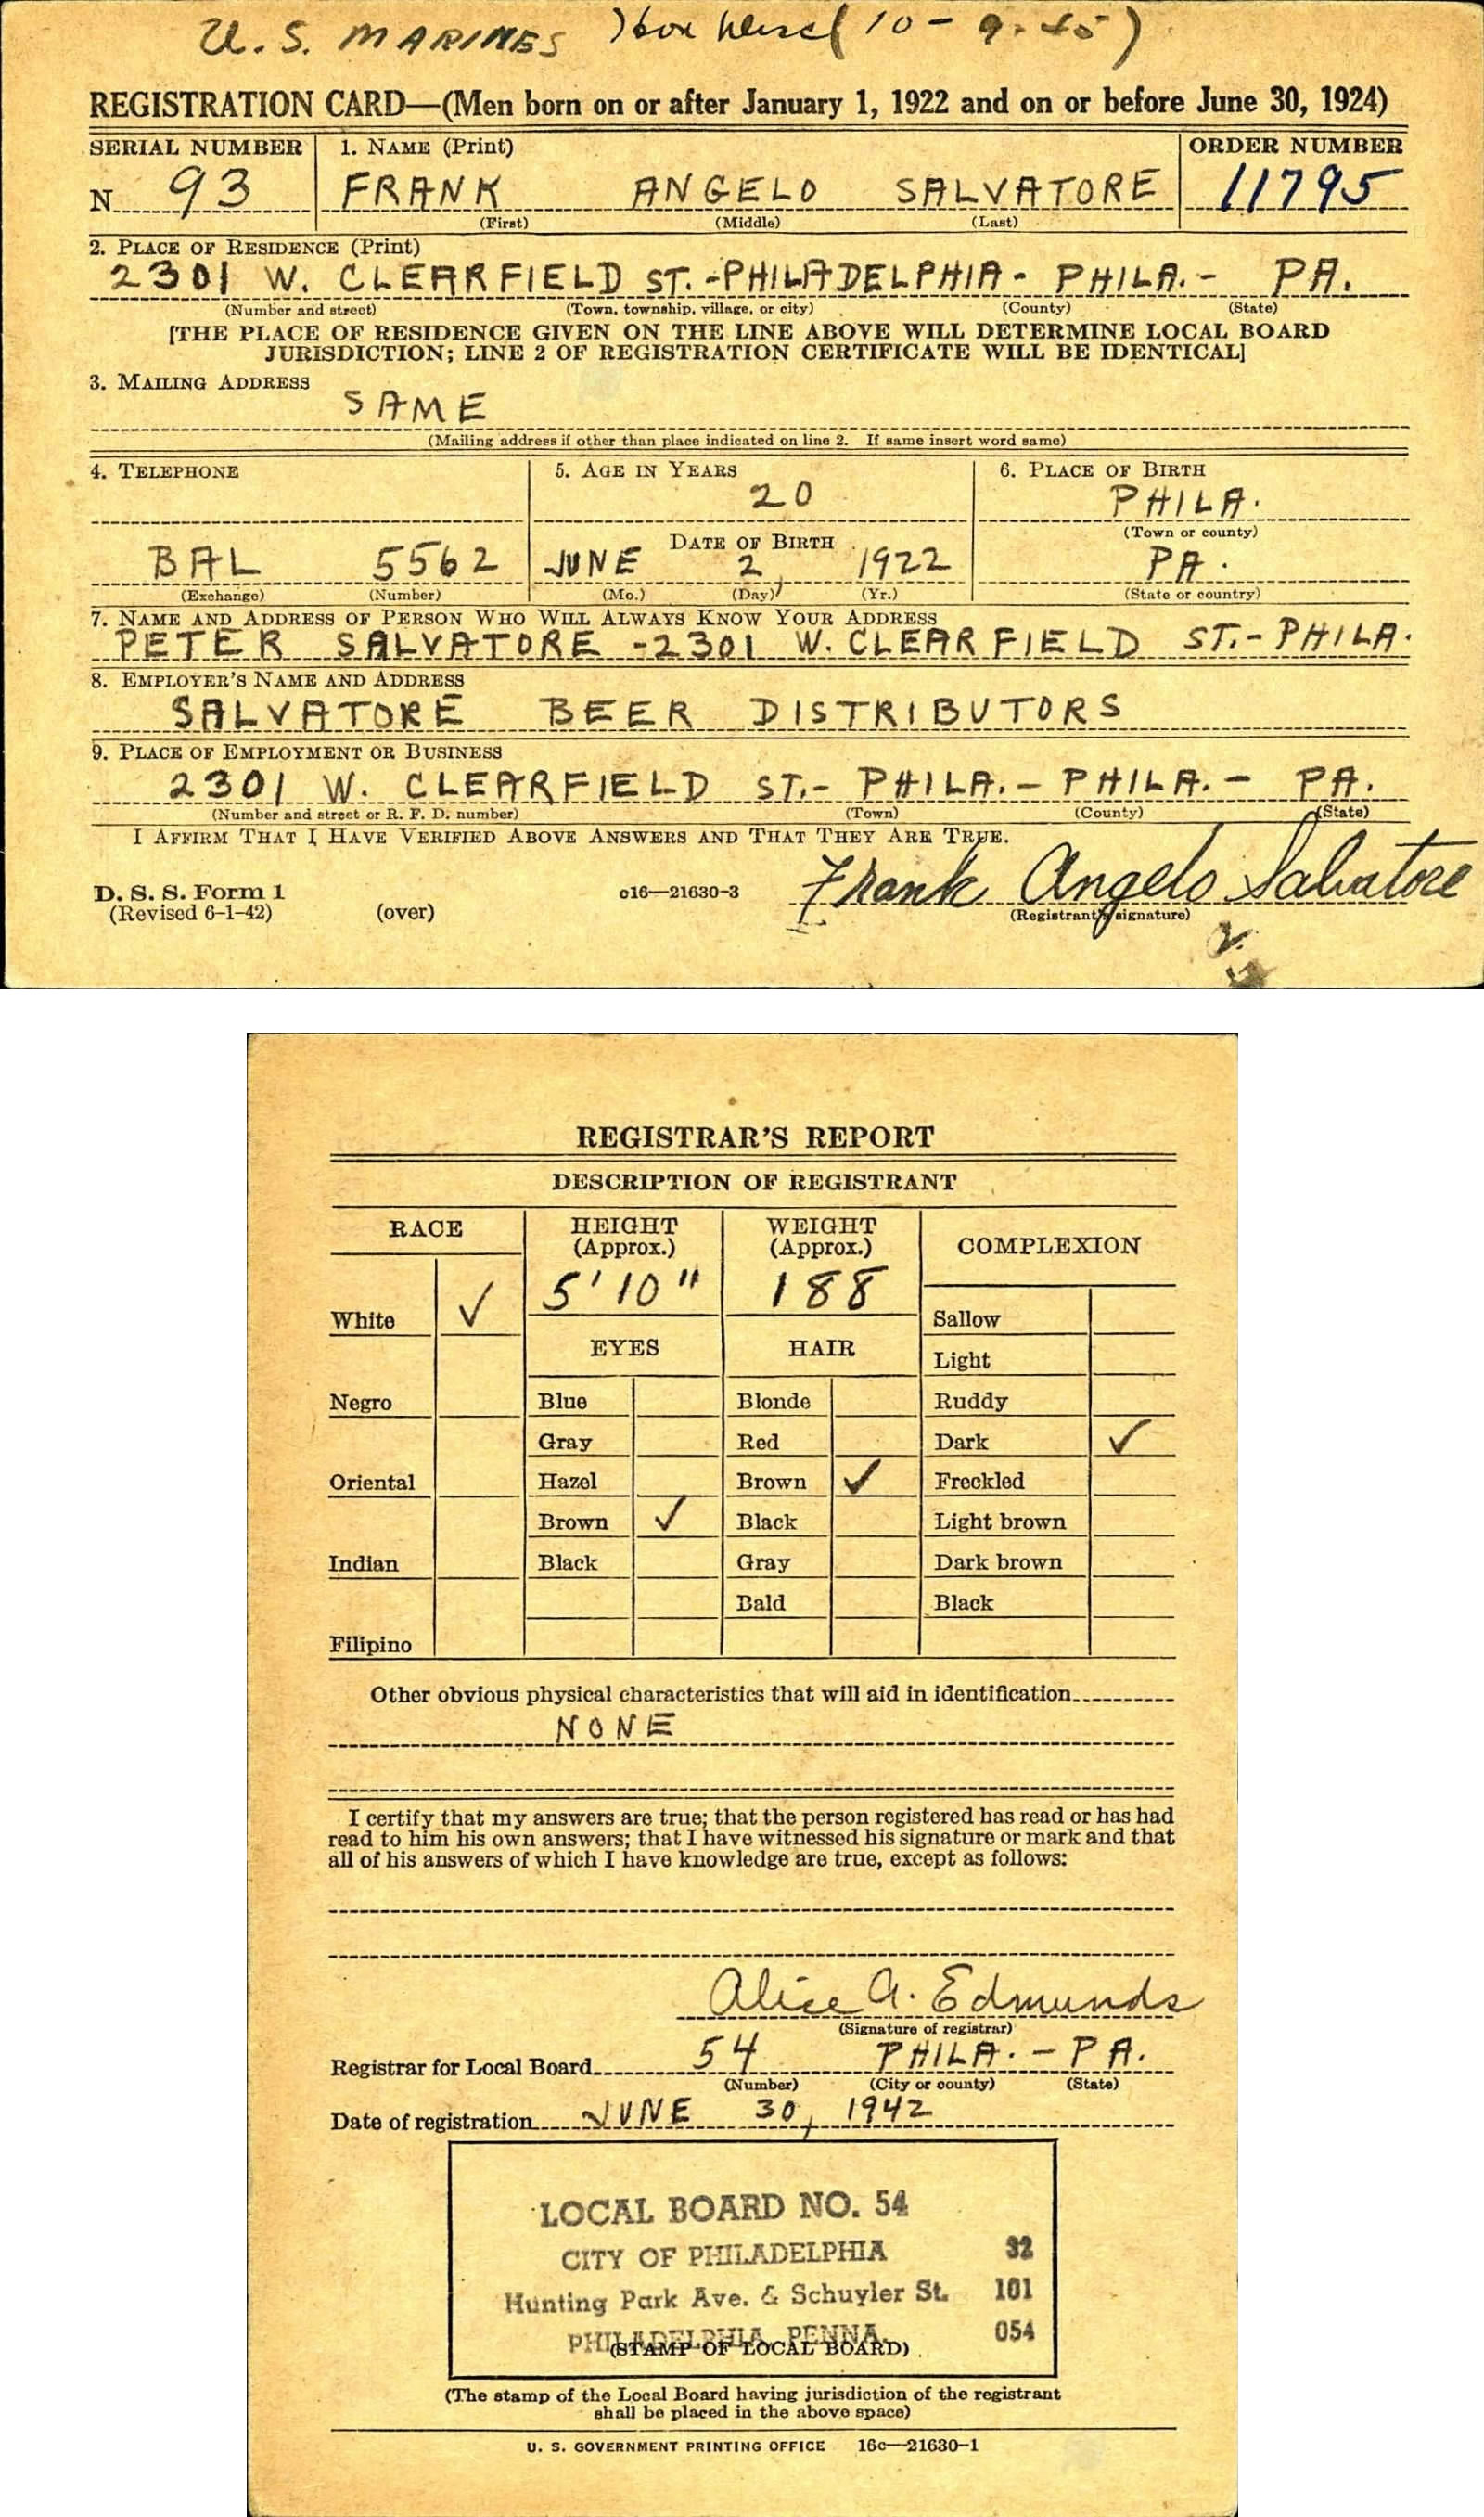 U. S. MARINES (10-9-45)
REGISTRATION CARD—(Men born on or after January 1, 1922 and on or before June 30, 1924)
SERIAL NUMBER 1. NAME (Print) ORDER NUMBER
N 93 FRANK ANGELO SALVATORE 11795
(First) (Middle) (Last)
2. PLACE OF RESIDENCE (Print)
2301 W. CLEARFIELD ST.-PHILADELPHIA- PHILA.- PA.
(Number and street) (Town, township, village, or city) (County) (State)
[THE PLACE OF RESIDENCE GIVEN ON THE LINE ABOVE WILL DETERMINE LOCAL BOARD
JURISDICTION; LINE 2 OF REGISTRATION CERTIFICATE WILL BE IDENTICAL]
3. MAILING ADDRESS
SAME
(Mailing address if other than place indicated on line 2. If same insert word same)
4. TELEPHONE 5. AGE IN YEARS 6. PLACE OF BIRTH
20 PHILA.
DATE OF BIRTH (Town or county)
BAL 5562 JUNE 2, 1922 PA.
(Exchange) (Number) (Mo.) (Day) (Yr.) (State or country)
7. NAME AND ADDRESS OF PERSON WHO WILL ALWAYS KNOW YOUR ADDRESS
PETER SALVATORE -2301 W. CLEARFIELD ST.- PHILA.
8. EMPLOYER'S NAME AND ADDRESS
SALVATORE BEER DISTRIBUTORS
9. PLACE OF EMPLOYMENT OR BUSINESS
2301 W. CLEARFIELD ST.- PHILA.- PHILA.- PA.
(Number and street or R. F. D. number) (Town) (County) (State)
I AFFIRM THAT I HAVE VERIFIED ABOVE ANSWERS AND THAT THEY ARE TRUE.
Frank Angelo Salvatore
D. S. S. Form 1 c16—21630-3
(Revised 6-1-42) (over) (Registrant's signature)
REGISTRAR'S REPORT
DESCRIPTION OF REGISTRANT
RACE HEIGHT (Approx.) WEIGHT (Approx.) COMPLEXION
5'10" 188
White ✓ Sallow
EYES HAIR
Light
Negro Blue Blonde Ruddy
Gray Red Dark ✓
Oriental Hazel Brown ✓ Freckled
Brown ✓ Black Light brown
Indian Black Gray Dark brown
Bald Black
Filipino
Other obvious physical characteristics that will aid in identification
NONE
I certify that my answers are true; that the person registered has read or has had
read to him his own answers; that I have witnessed his signature or mark and that
all of his answers of which I have knowledge are true, except as follows:
Alice A. Edmunds
(Signature of registrar)
Registrar for Local Board 54 PHILA.-PA.
(Number) (City or county) (State)
Date of registration JUNE 30, 1942
LOCAL BOARD NO. 54
CITY OF PHILADELPHIA 32
Hunting Park Ave. & Schuyler St. 101
PHILADELPHIA, PENNA. 054
(STAMP OF LOCAL BOARD)
(The stamp of the Local Board having jurisdiction of the registrant
shall be placed in the above space)
U. S. GOVERNMENT PRINTING OFFICE 16c—21630-1